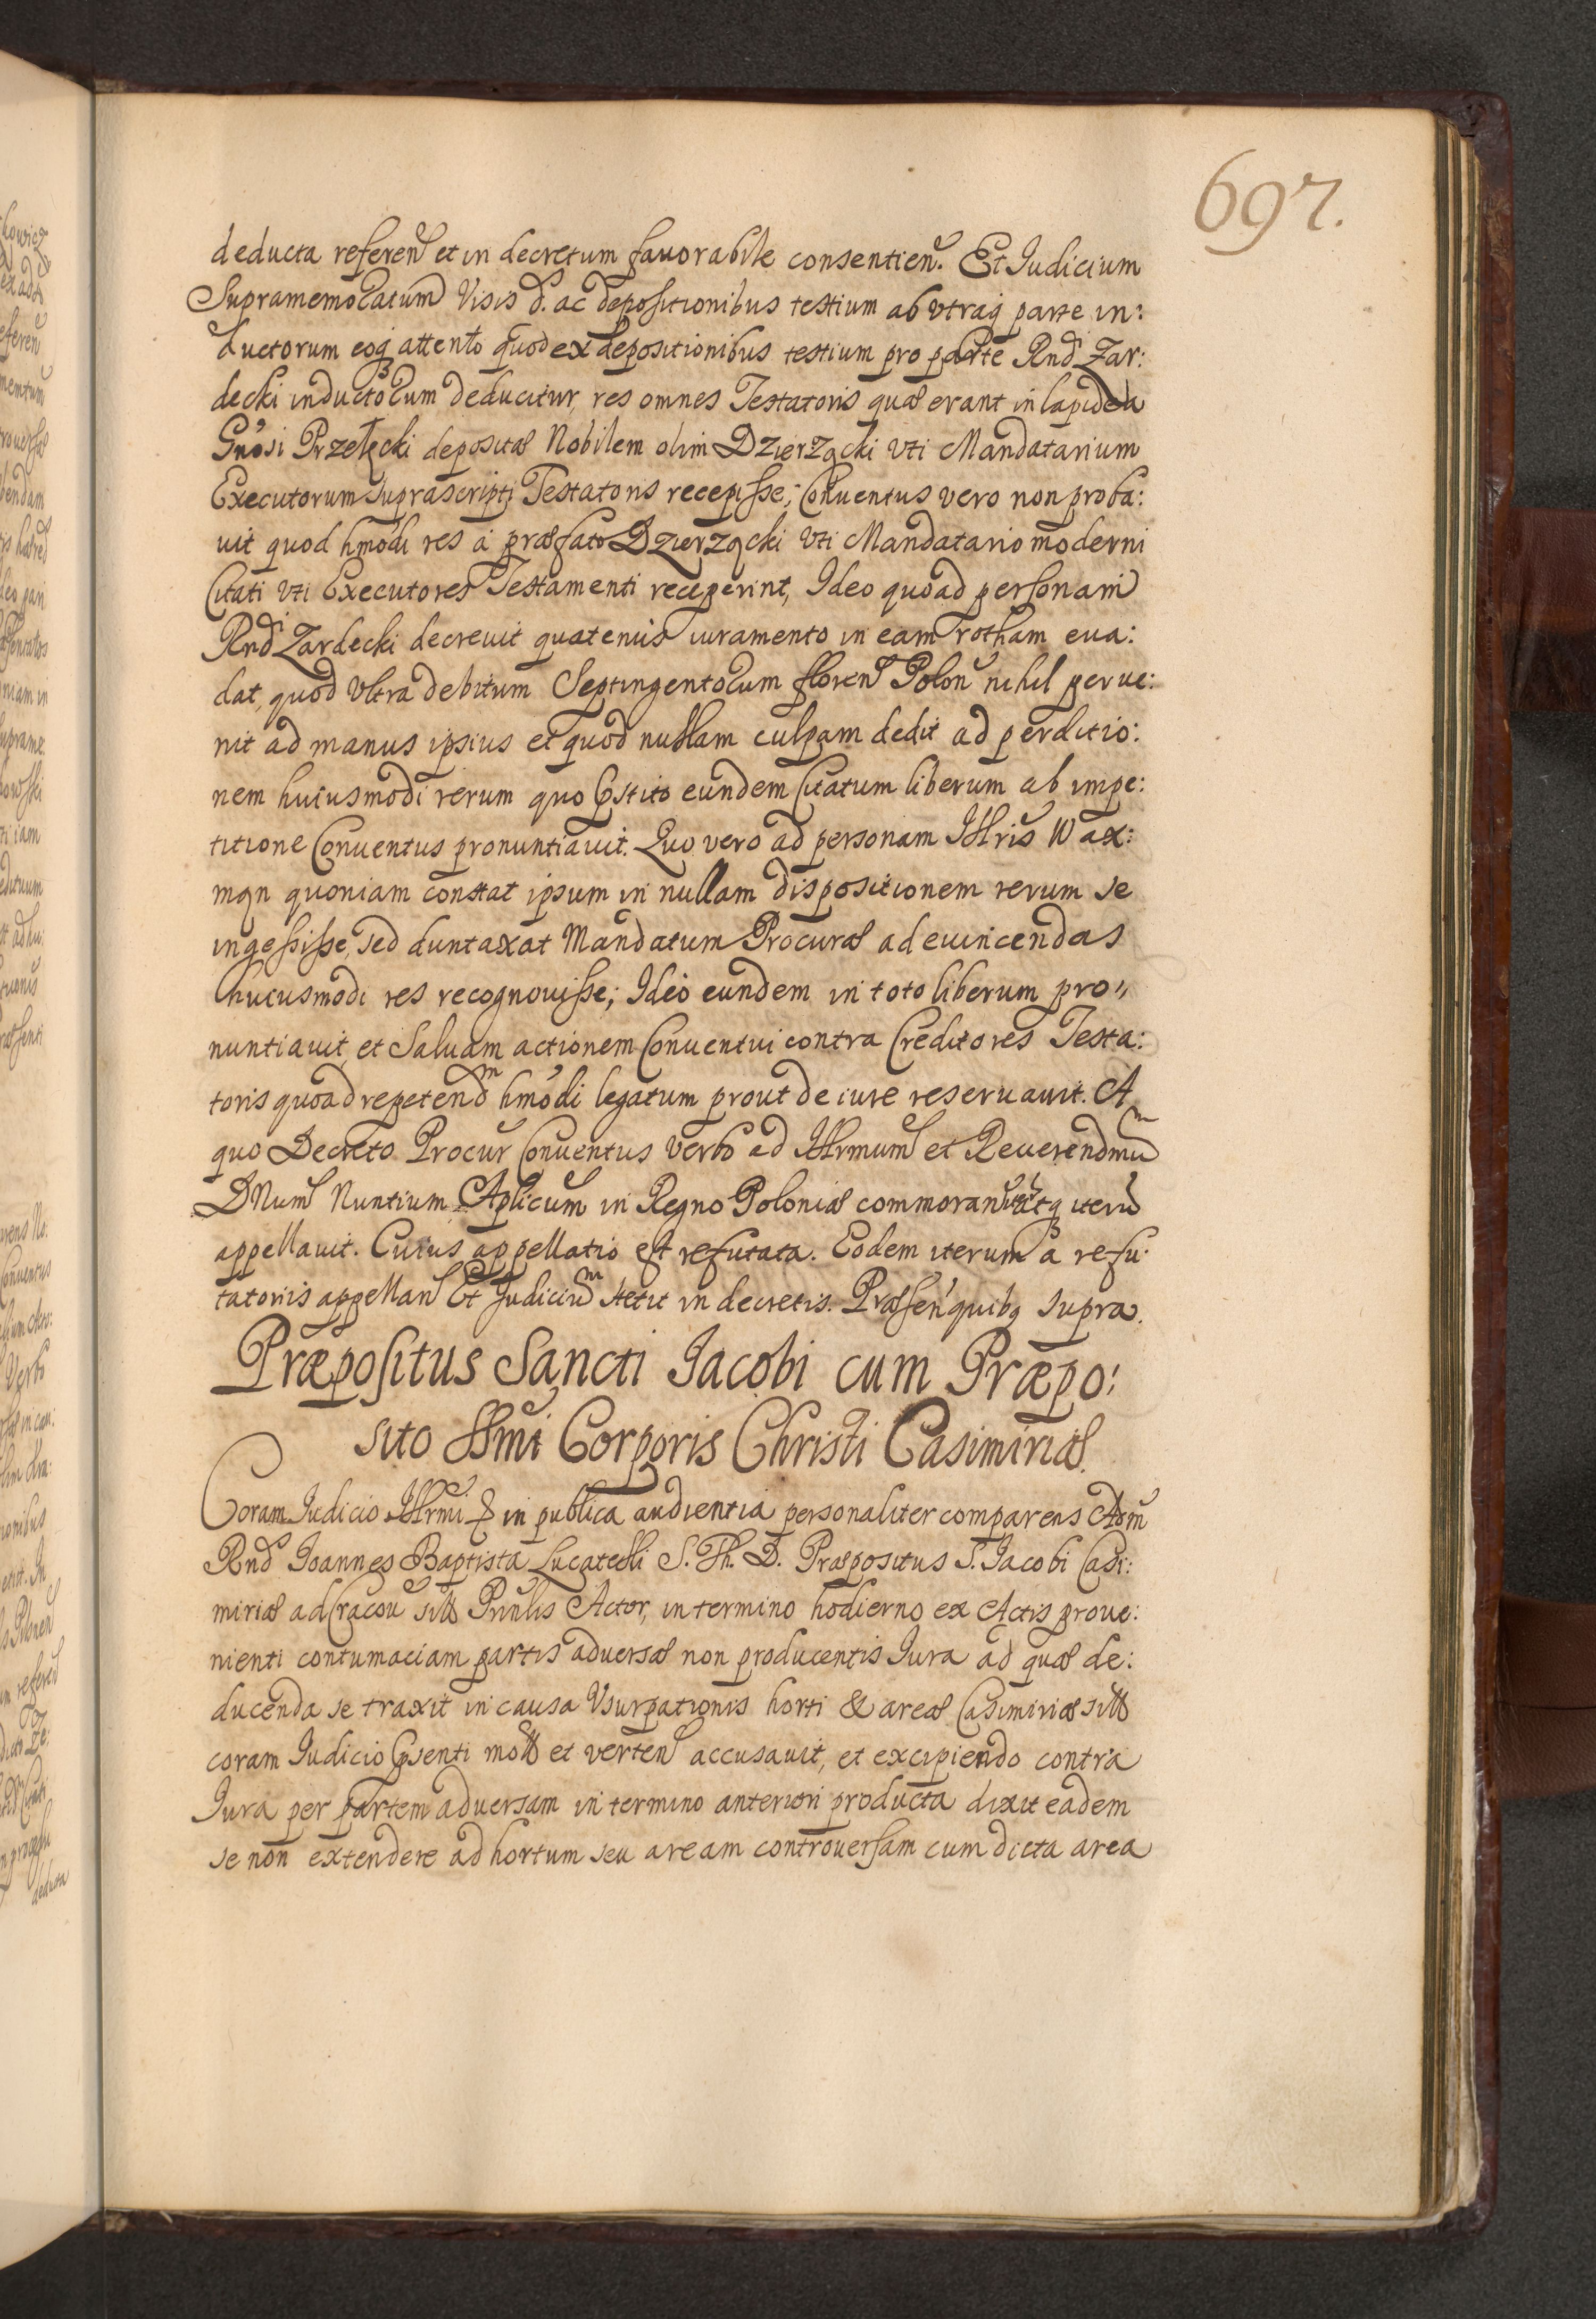 697.
deducta referen̄ et in decretum fauorabile consentien̄. Et Iudicium
Supramemoratum Visis d. ac depositionibus testium ab vtraq parte in:
ductorum eoq attento quod ex depositionibus testium pro parte Rnd Zar:
decki inductorum deducitur, res omnes Testatoris quæ erant in lapidea
Gnosi Przełęcki depositæ Nobilem olim Dzierzącki vti Mandatarium
Executorum suprascripti Testatoris recepisse; Conuentus vero non proba:
uit quod hmodi res á præfato Dzierzącki vti Mandatario moderni
Citati vti Executores Testamenti receperint, Ideo quoad personam
Rndi Zardecki decreuit quatenus iuramento in eam rotham eua:
dat, quod vltra debitum Septingentorum floren̄ Polon̄ nihil perue:
nit ad manus ipsius et quod nullam culpam dedit ad perditio:
nem huiusmodi rerum quo pstito eundem Citatum liberum ab impe:
titione Conuentus pronuntiauit. Quo vero ad personam Illris Wax:
mąn quoniam constat ipsum in nullam dispositionem rerum se
ingessisse, sed duntaxat Mandatum Procuræ ad euincendas
huiusmodi res recognouisse; Ideò eundem in toto liberum pro„
nuntiauit, et Saluam actionem Conuentui contra Creditores Testa:
toris quoad repetendm hmodi legatum prout de iure reseruauit. A
quo Decreto Procur Conuentus verbo ad Illrmum et Reuerendmum
DNum Nuntium Aplicum in Regno Poloniæ commoran iterū atq iterū
appellauit. Cuius appellatio est refutata. Eodem iterum a refu:
tatoriis appellan̄ Et Judicium stetit in decretis. Præsen quibq supra.
Præpositus Sancti Jacobi cum Præpo:
sito SSmi Corporis Christi Casimiriæ.
Coram Iudicio Illrmi & in publica audientia personaliter comparens Adm
Rnd Ioannes Baptista Lucatelli S. Th. D. Præpositus S. Iacobi Casi:
miriæ ad Cracou sitt Prinlis Actor, in termino hodierno ex Actis proue:
nienti contumaciam partis aduersæ non producentis Iura ad quæ de:
ducenda se traxit in causa Vsurpationis horti & areæ Casimiriæ sitt
coram Iudicio psenti mott et verten̄ accusauit, et excipiendo contra
Iura per partem aduersam in termino anteriori producta dixit eadem
se non extendere ad hortum seu aream controuersam cum dicta area